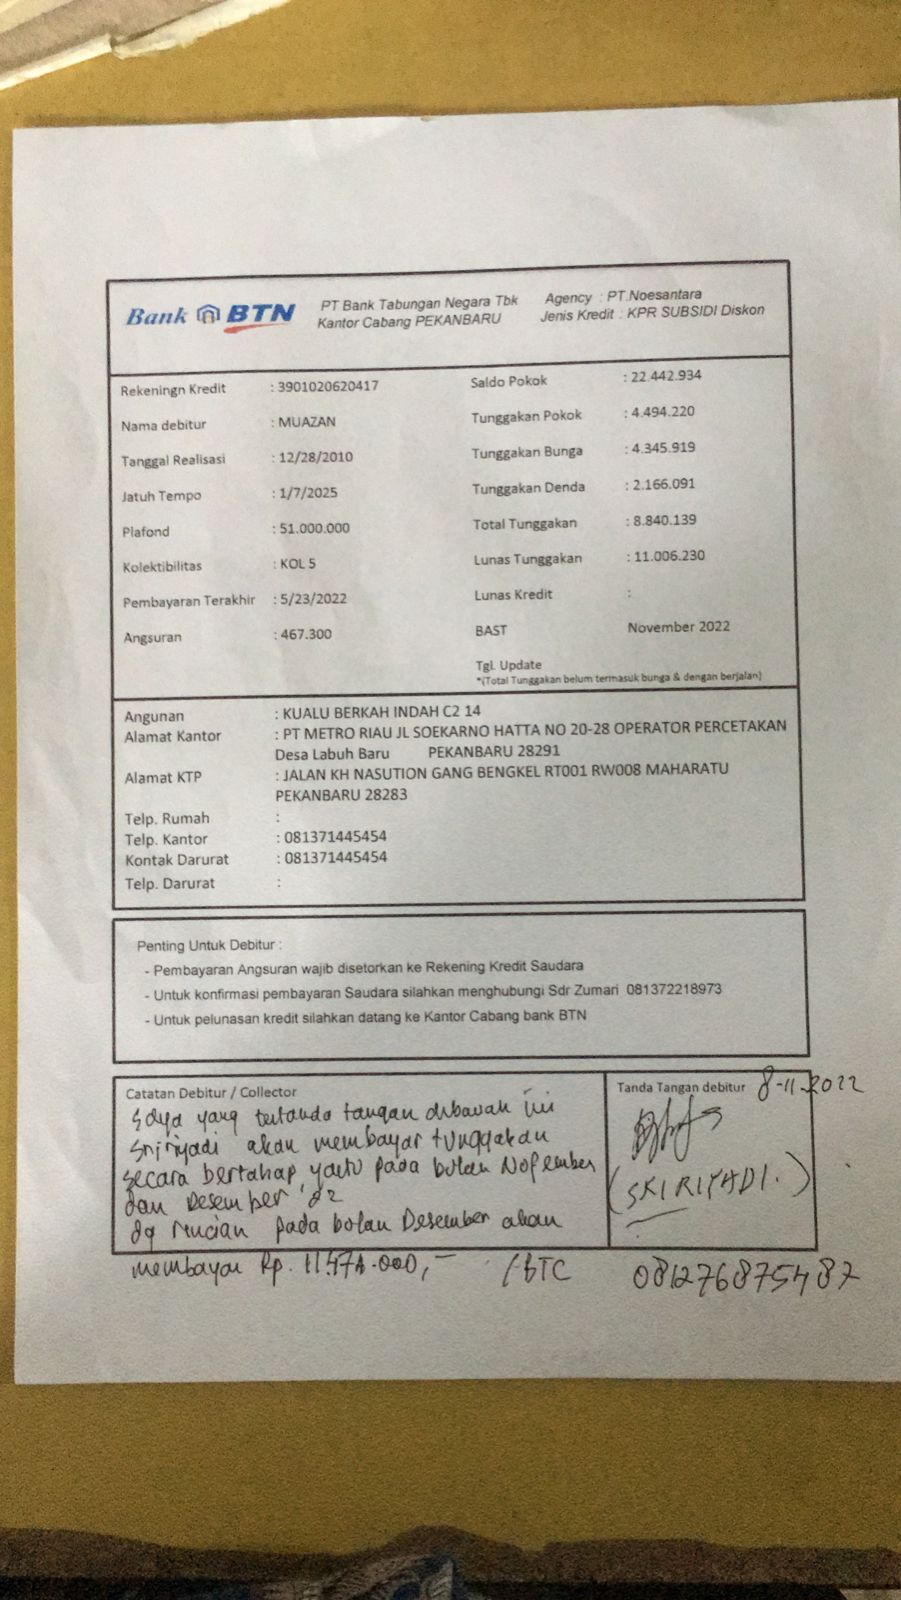 Bank BTN
PT Bank Tabungan Negara Tbk
Kantor Cabang PEKANBARU
Agency : PT.Noesantara
Jenis Kredit : KPR SUBSIDI Diskon
Rekeningn Kredit : 3901020620417
Nama debitur : MUAZAN
Tanggal Realisasi : 12/28/2010
Jatuh Tempo : 1/7/2025
Plafond : 51.000.000
Kolektibilitas : KOL 5
Pembayaran Terakhir : 5/23/2022
Angsuran : 467.300
Saldo Pokok : 22.442.934
Tunggakan Pokok : 4.494.220
Tunggakan Bunga : 4.345.919
Tunggakan Denda : 2.166.091
Total Tunggakan : 8.840.139
Lunas Tunggakan : 11.006.230
Lunas Kredit :
BAST November 2022
Tgl. Update
*(Total Tunggakan belum termasuk bunga & dengan berjalan)
Angunan : KUALU BERKAH INDAH C2 14
Alamat Kantor : PT METRO RIAU JL SOEKARNO HATTA NO 20-28 OPERATOR PERCETAKAN
Desa Labuh Baru PEKANBARU 28291
Alamat KTP : JALAN KH NASUTION GANG BENGKEL RT001 RW008 MAHARATU
PEKANBARU 28283
Telp. Rumah :
Telp. Kantor : 081371445454
Kontak Darurat : 081371445454
Telp. Darurat :
Penting Untuk Debitur :
- Pembayaran Angsuran wajib disetorkan ke Rekening Kredit Saudara
- Untuk konfirmasi pembayaran Saudara silahkan menghubungi Sdr Zumari 081372218973
- Untuk pelunasan kredit silahkan datang ke Kantor Cabang bank BTN
Catatan Debitur / Collector
Saya yang tertanda tangan dibawah ini
Sririyadi akan membayar tunggakan
secara bertahap, yaitu pada bulan Nofember
dan Desember '22
dg rincian pada bulan Desember akan
membayar Rp.
Tanda Tangan debitur 8-11-2022
(SRIRIYADI.)
081276875487